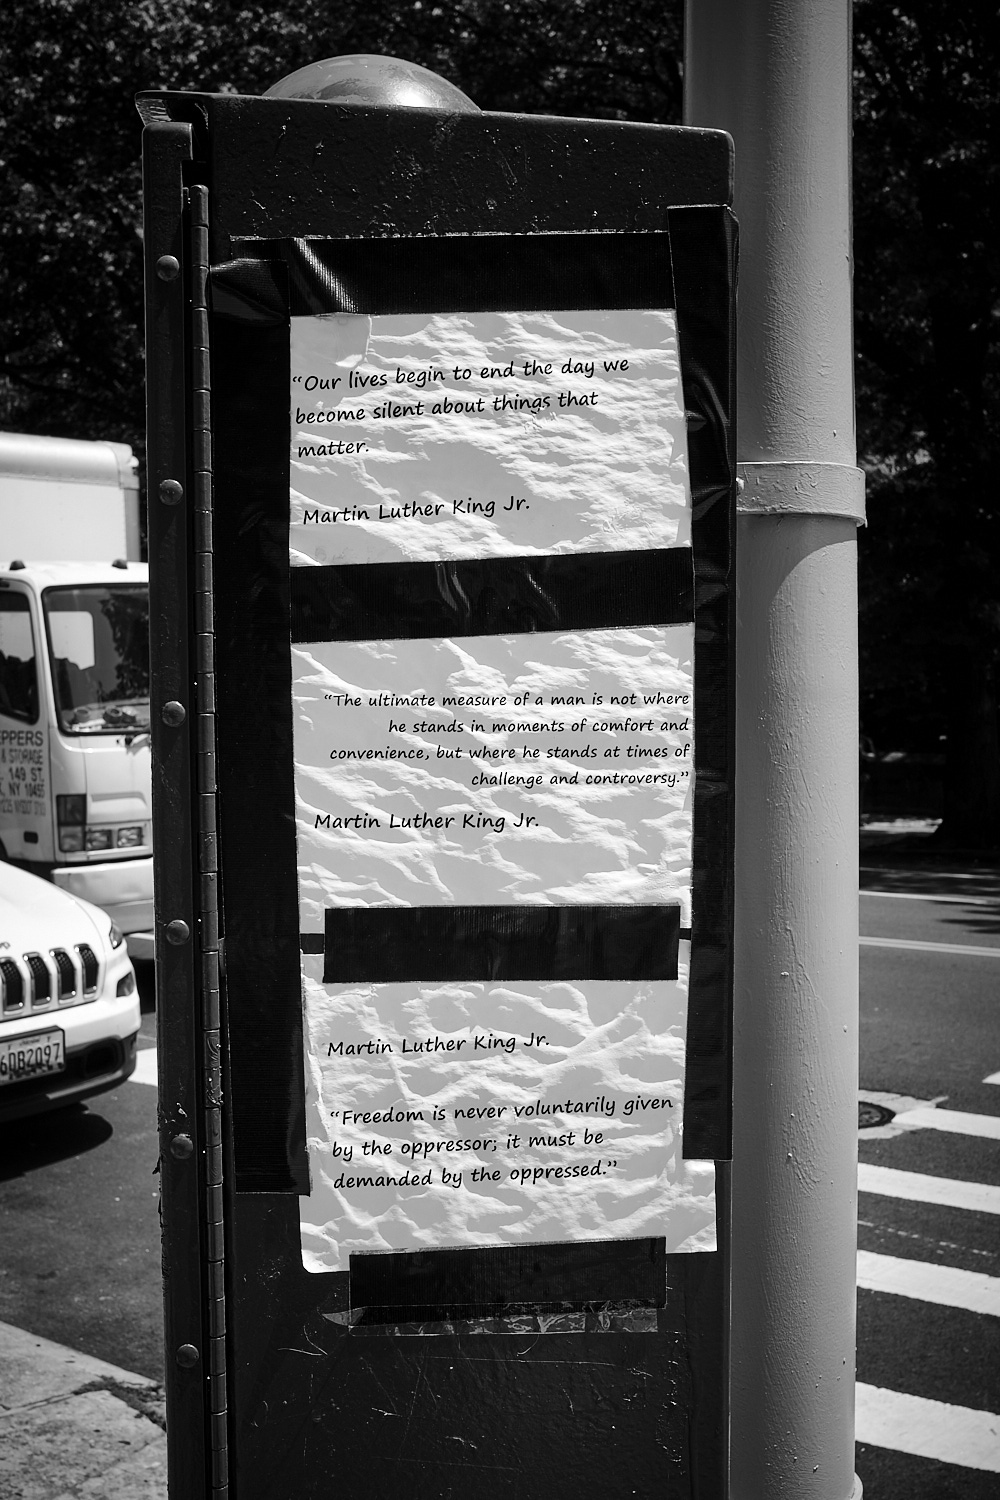 “Our lives begin to end the day we
become silent about things that
matter.
Martin Luther King Jr.
“The ultimate measure of a man is not where
he stands in moments of comfort and
convenience, but where he stands at times of
challenge and controversy.”
Martin Luther King Jr.
Martin Luther King Jr.
“Freedom is never voluntarily given
by the oppressor; it must be
demanded by the oppressed.”
EPPERS
& STORAGE
149 ST.
NY 10455
6DB2097